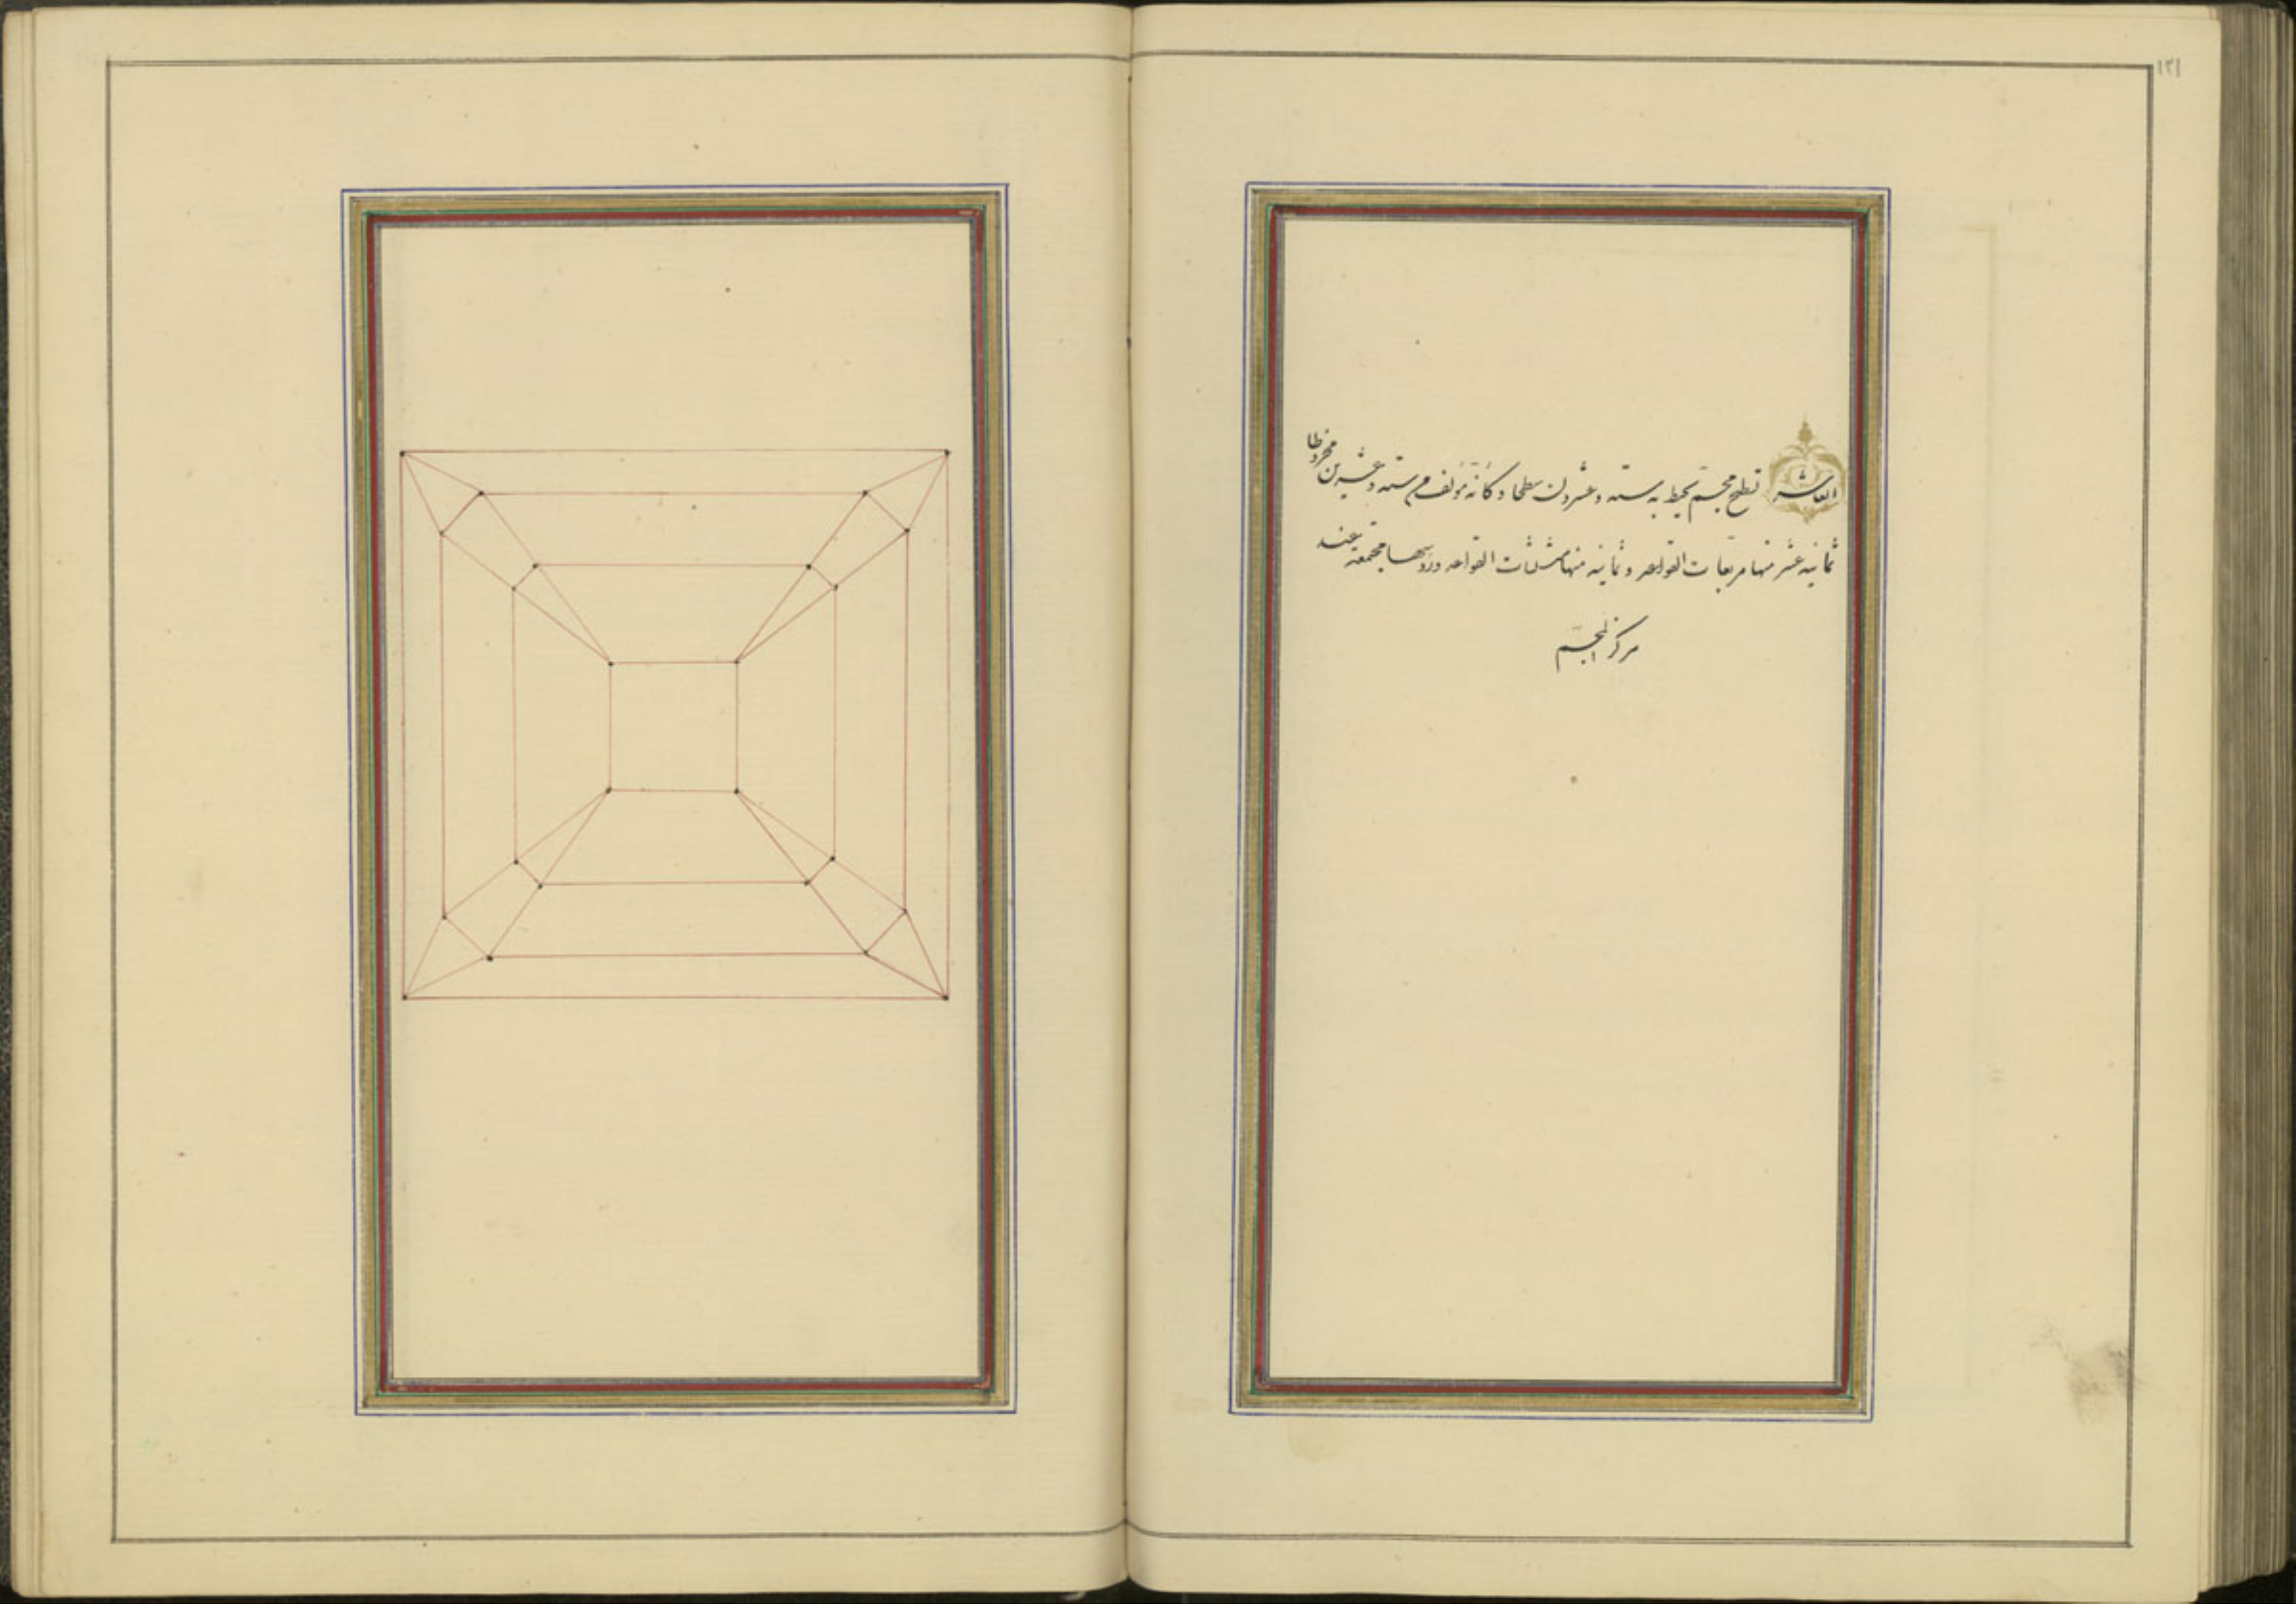 ١٢١
العاشر تسطيح مجسم يحيط به ستة وعشرون سطحا وكأنه مؤلف من ستة وعشرين مخروطا
ثمانية عشر منها مربعات القواعد وثمانية منها مثلثات القواعد ورؤسها مجتمعة عند
مركز المجسم